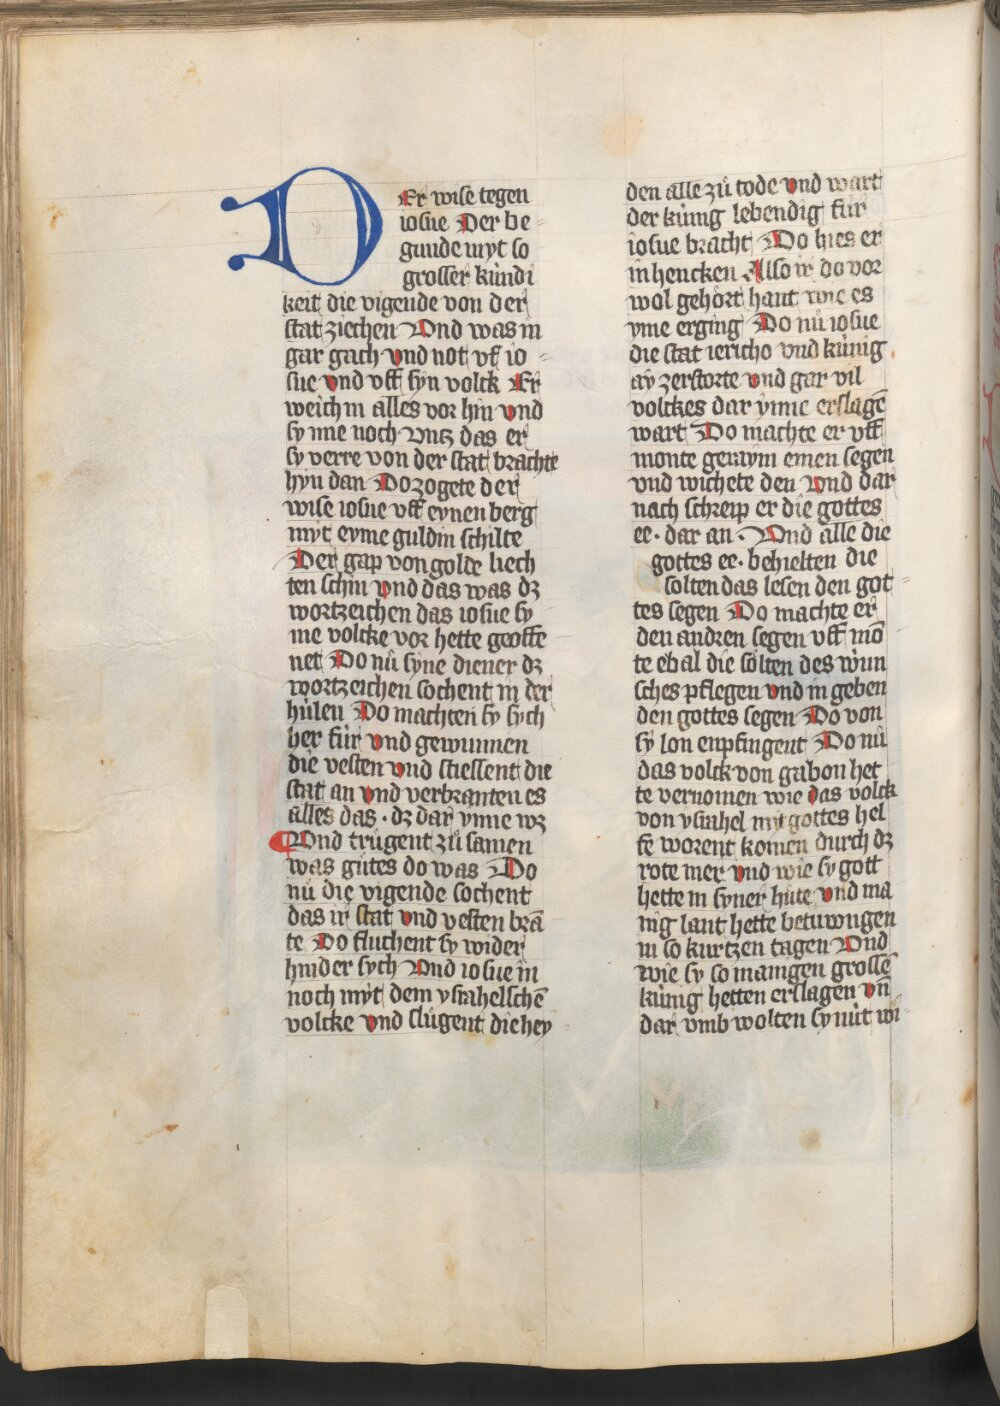 DEr wise tegen
iosue Der be
gunde myt so
grosser kúndi
keit die vigende von der
stat ziechen Vnd was in
gar gach vnd not vf io
sue vnd vff syn volck Er
weich in alles vor hin vnd
sy ime noch Vntz das er
sy verre von der stat brachte
hyn dan Do zogete der
wise iosue vff eynen berg
myt eyme guldin schilte
Der gap von golde liech
ten schin vnd das was dz
wortzeichen das iosue sy
me volcke vor hette geoffe
net Do nů syne diener dz
wortzeichen sochent in der
húlen Do machten sy sych
her fúr vnd gewunnen
die vesten vnd stiessent die
stat an vnd verbranten es
alles das · dz dar ynne wz
Vnd trůgent zů samen
was gůtes do was Do
nů die vigende sochent
das ir stat vnd vesten brā
te Do fluchent sy wider
hinder sych Vnd iosue in
noch myt dem ysrahelschē
volcke vnd slůgent die hey
den alle zů tode vnd wart
der kúnig lebendig fúr
iosue bracht Do hies er
in hencken Also ir do vor
wol gehört hant wie es
yme erging Do nů iosue
die stat iericho vnd kúnig
ay zerstorte vnd gar vil
volckes dar ynne erslagē
wart Do machte er vff
monte geraym einen segen
vnd wichete den Vnd dar
nach schreip er die gottes
ee · dar an · Vnd alle die
gottes ee · behielten die
solten das lesen den got
tes segen Do machte er
den andren segen vff mō
te ebal die sölten des wun
sches pflegen vnd in geben
den gottes segen Do von
sy lon enpfingent Do nů
das volck von gabon het
te vernomen wie das volck
von ysrahel mit gottes hel
fe worent komen durch dz
rote mer vnd wie sy gott
hette in syner hůte vnd ma
nig lant hette betwungen
in so kurtzen tagen Vnd
wie sy so mangen grossē
kúnig hetten erslagen vn̄
dar vmb wolten sy nút wi